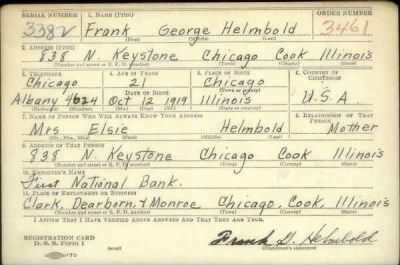 SERIAL NUMBER 1. NAME (Print) ORDER NUMBER
3382 Frank George Helmbold 3461
(First) (Middle) (Last)
2. ADDRESS (Print)
838 N. Keystone Chicago Cook Illinois
(Number and street or R. F. D. number) (Town) (County) (State)
3. TELEPHONE 4. AGE IN YEARS 5. PLACE OF BIRTH 6. COUNTRY OF CITIZENSHIP
Chicago 21 Chicago
DATE OF BIRTH (Town or county)
Albany 4624 Oct 12 1919 Illinois U.S.A
(Exchange) (Number) (Mo.) (Day) (Yr.) (State or country)
7. NAME OF PERSON WHO WILL ALWAYS KNOW YOUR ADDRESS 8. RELATIONSHIP OF THAT PERSON
Mrs Elsie Helmbold Mother
(Mr., Mrs., Miss) (First) (Middle) (Last)
9. ADDRESS OF THAT PERSON
838 N. Keystone Chicago Cook Illinois
(Number and street or R. F. D. number) (Town) (County) (State)
10. EMPLOYER'S NAME
First National Bank.
11. PLACE OF EMPLOYMENT OR BUSINESS
Clark, Dearborn, & Monroe Chicago, Cook, Illinois
(Number and street or R. F. D. number) (Town) (County) (State)
I AFFIRM THAT I HAVE VERIFIED ABOVE ANSWERS AND THAT THEY ARE TRUE.
REGISTRATION CARD
D. S. S. Form 1 (over) Frank G. Helmbold
(Registrant's signature)